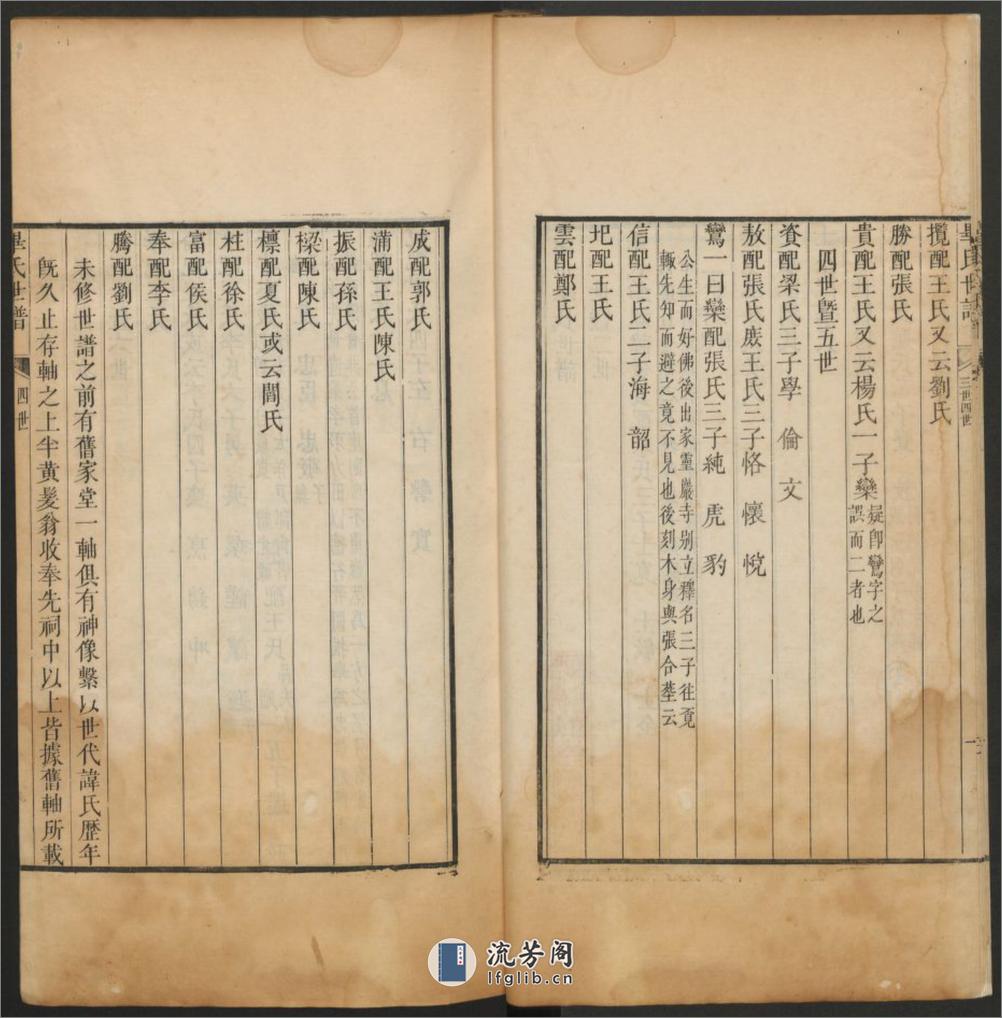 畢氏世譜
三世四世
攬配王氏又云劉氏
勝配張氏
貴配王氏又云楊氏一子欒
疑卽鸞字之
誤而二者也
四世暨五世
資配梁氏三子學 倫 文
敖配張氏庶王氏三子恪 懷 悅
鸞一曰欒配張氏三子純 虎 豹
公生而好佛後出家靈巖寺别立釋名三子往覔
輙先知而避之竟不見也後刻木身與張合塟云
信配王氏二子海 韶
圯配王氏
雲配鄭氏
成配郭氏
蒲配王氏陳氏
振配孫氏
樑配陳氏
檩配夏氏或云閻氏
柱配徐氏
富配侯氏
奉配李氏
騰配劉氏
未修世譜之前有舊家堂一軸俱有神像繫以世代諱氏歷年
旣久止存軸之上半黄髮翁收奉先祠中以上皆據舊軸所載
畢氏世譜
四世
流芳阁
lfglib.cn